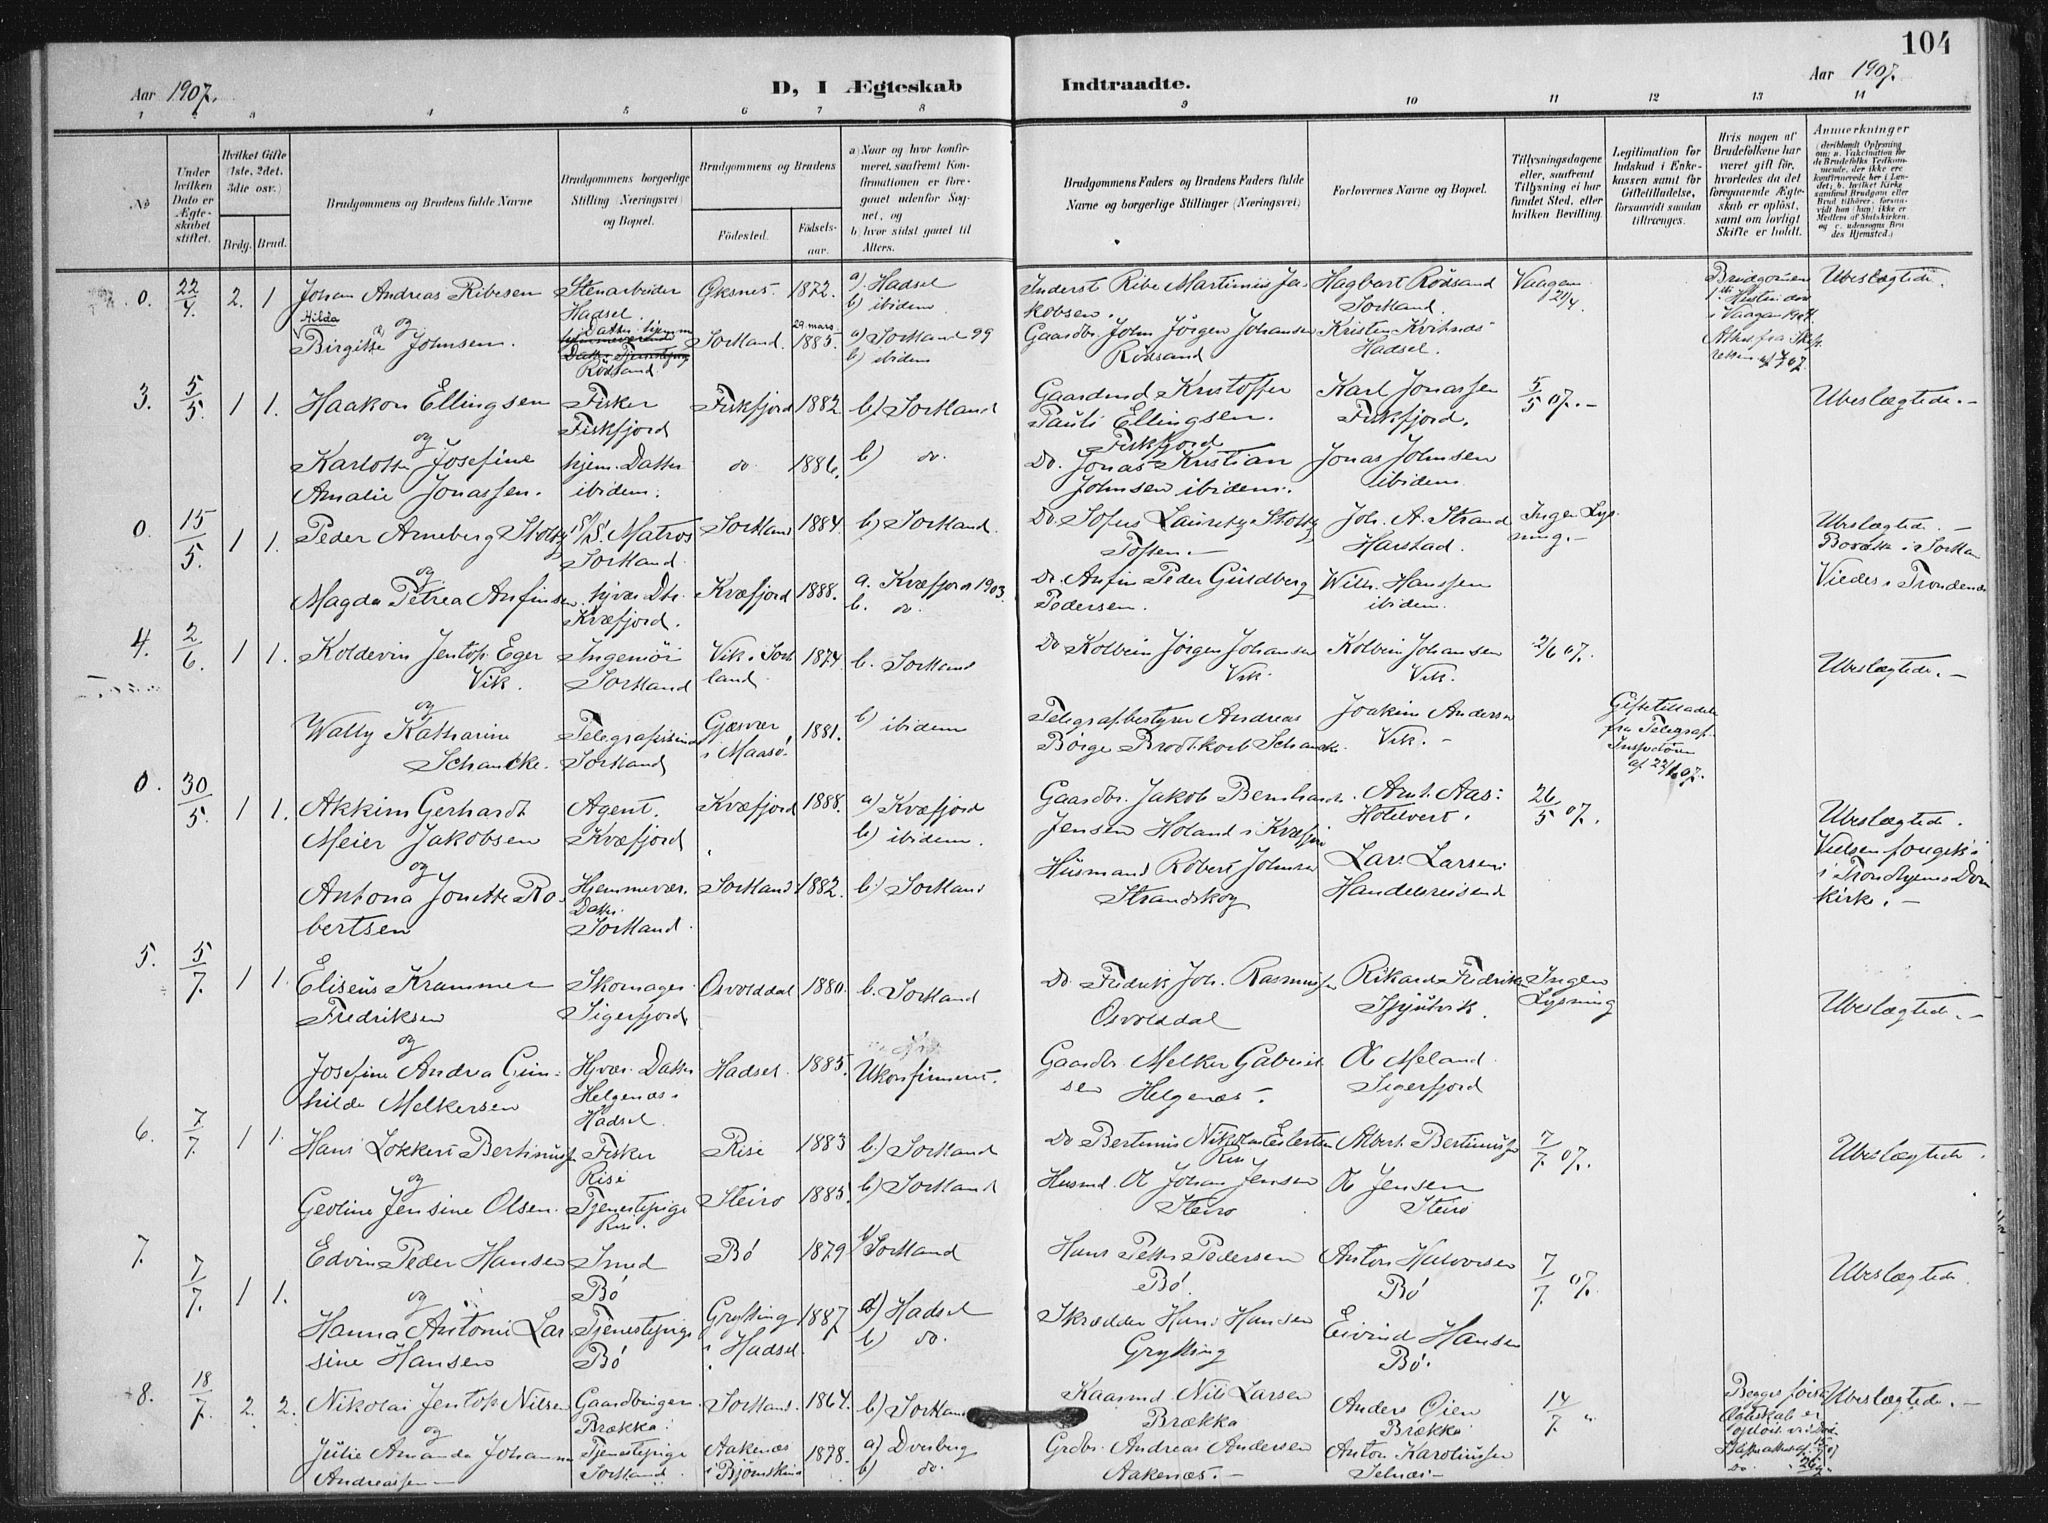 104
Aar 1907.
D, I Ægteskab
Indtraadte.
Aar 1907.
1 2 3 4 5 6 7 8 9 10 11 12 13 14
No
Under hvilken Dato er Ægteskabet stiftet.
Hvilket Gifte (1ste, 2det, 3die osv.)
Brdg. Brud.
Brudgommens og Brudens fulde Navne
Brudgommens borgerlige Stilling (Næringsvei) og Bopæl.
Brudgommens og Brudens
Födested.
Födselsaar.
a) Naar og hvor konfirmeret, saafremt Konfirmationen er foregaaet udenfor Sognet, og
b) hvor sidst gaaet til Alters.
Brudgommens Faders og Brudens Faders fulde Navne og borgerlige Stillinger (Næringsvei)
Forlovernes Navne og Bopæl.
Tillysningsdagene eller, saafremt Tillysning ei har fundet Sted, efter hvilken Bevilling.
Legitimation for Indskud i Enkekassen samt for Giftetilladelse, forsaavidt saadan tiltrænges.
Hvis nogen af Brudefolkene har været gift för, hvorledes da det foregaaende Ægteskab er oplöst, samt om lovligt Skifte er holdt.
Anmerkninger
(deriblandt Oplysning om: a. Vakcination for de Brudefolks Vedkommende, der ikke ere konfirmerede her i Landet; b. hvilket Kirkesamfund Brudgom eller Brud tilhörer, forsaavidt han (hun) ikke er Medlem af Statskirken, og c. udensogns Brudes Hjemsted.)
0. 22/4 2. 1 Johan Andreas Ribesen Stenarbeider Hadsel. Öksnes. 1872. a). Hadsel b) ibidem
Inderst Ribe Martinus Jakobsen. Hagbart Rödsand Sortland. Vaagan 21/4 Ubeslægtede.
og
Hilda Birgitte Johnsen. Datter hjemm Rödsand. Sortland. 29 mars 1885. a) Sortland 99 b) ibidem
Gaardbr. John Jörgen Johansen Rödsand Kristen Kvitnæs Hadsel.
3. 5/5 1 1. Haakon Ellingsen Fisker Fiskfjord Fiskfjord 1882. b) Sortland
Gaardmd Kristoffer Pauli Ellingsen. Fiskfjord Karl Jonassen Fiskfjord. 5/5 07.- Ubeslægtede.-
og
Karlotte Josefine Amalie Jonassen. hjem. Datter ibidem. do. 1886. b) do.
Do. Jonas Kristian Johnsen ibidem. Jonas Johnsen ibidem
0. 15/5. 1 1. Peder Arneberg Stoltz S/S. Matros Sortland. Sortland 1884. b) Sortland.
Do. Sofus Lauretz Stoltz Joh. A. Strand Harstad. Ingen Lysning.- Ubeslægtede.-
og
Magda Petrea Anfinsen. hjvær. Dtr. Kvæfjord. Kvæfjord 1888. a. Kvæfjord 1903. b. do.
Do. Anfin Peder Guldberg Pedersen. Wilh. Hanssen ibidem. Vielse i Trondenes
4. 2/6. 1 1. Koldevin Jentoft Eger Vik. Ingeniör Sortland Vik i Sortland 1874. b. Sortland
Do Kolbein Jörgen Johansen Vik. Kolbein Johansen Vik. 2/6 07. Ubeslægtede.-
og
Wally Katharine Schancke. Telegrafistinde Sortland Gjæsvær i Maasö. 1881. b) ibidem
Telegrafbestyrer Andreas Börge Brodtkorb Schancke. Joakim Andersen Vik.- Giftetilladelse fra Telegraf-Inspektören
0. 30/5. 1 1. Akkim Gerhardt Meier Jakobsen Agent. Kvæfjord Kvæfjord 1888. a) Kvæfjord b) ibidem.
Gaardbr. Jakob Bernhard Jensen Holand i Kvæfjord Arnt Aas: Hotelvert. 26/5 07. Ubeslægtede.
og
Antona Jonette Robertsen Hjemmevær. Datter Sortland. Sortland. 1882. b) Sortland
Husmand Robert Johnsen Strandskog Lars Larsen Handelsreisende i Trondhjems Domkirke.-
5. 5/7. 1 1. Eliseus Krammer Fredriksen Skomager Sigerfjord Osvolddal 1880. b. Sortland
Do Fredrik Joh. Rasmussen Osvolddal Rikard Fredriksen Ingen Lysning Ubeslægtede.-
og
Josefine Andrea Gunhilde Melkersen Hjvær. Datter Helgenæs. Hadsel. Hadsel. 1885. Ukonfirmeret.
Gaardbr. Melker Gabrielsen Helgenæs. O Meland Sigerfjord
6. 7/7. 1 1. Hans Lokkert Bertinius Fisker Rise Rise 1883 b) Sortland
Do Bertinius Nikolai Eilertsen Rise Albert Bertiniussen 7/7. 07. Ubeslægtede.
og
Geoline Jensine Olsen. Tjenestepige Rise. Steiro 1885. b) Sortland
Husmd. O Johan Jensen Steiro O Jensen Steiro
7. 7/7. 1 1. Edvin Peder Hansen Smed Bö Bö 1879 b) Sortland
Hans Petter Pedersen Bö. Anton Halvorsen Bö 7/7. 07. Ubeslægtede.
og
Hanna Antonie Larsine Hansen Tjenestepige Bö Grytting i Hadsel. 1887 a) Hadsel b) do.
Skrædder Hans Hansen Grytting Eivind Hansen Bö.
8. 18/7. 2. 2. Nikolai Jentoft Nilsen Gaardbruger Brækka. Sortland. 1864. b) Sortland
Kaarmd. Nils Larsen Brækka Anders Öien Brækka 14/7. " Begges första Ægteskab er oplöst ved Död. Ubeslægtede.-
og
Julie Amanda Johanna Andreassen Tjenestepige Sortland. Aakenæs i Björnskinn 1878. a) Dverberg b) do.
Grdbr. Andreas Andersen Aakenæs.- Anton Karoliussen Selnæs-